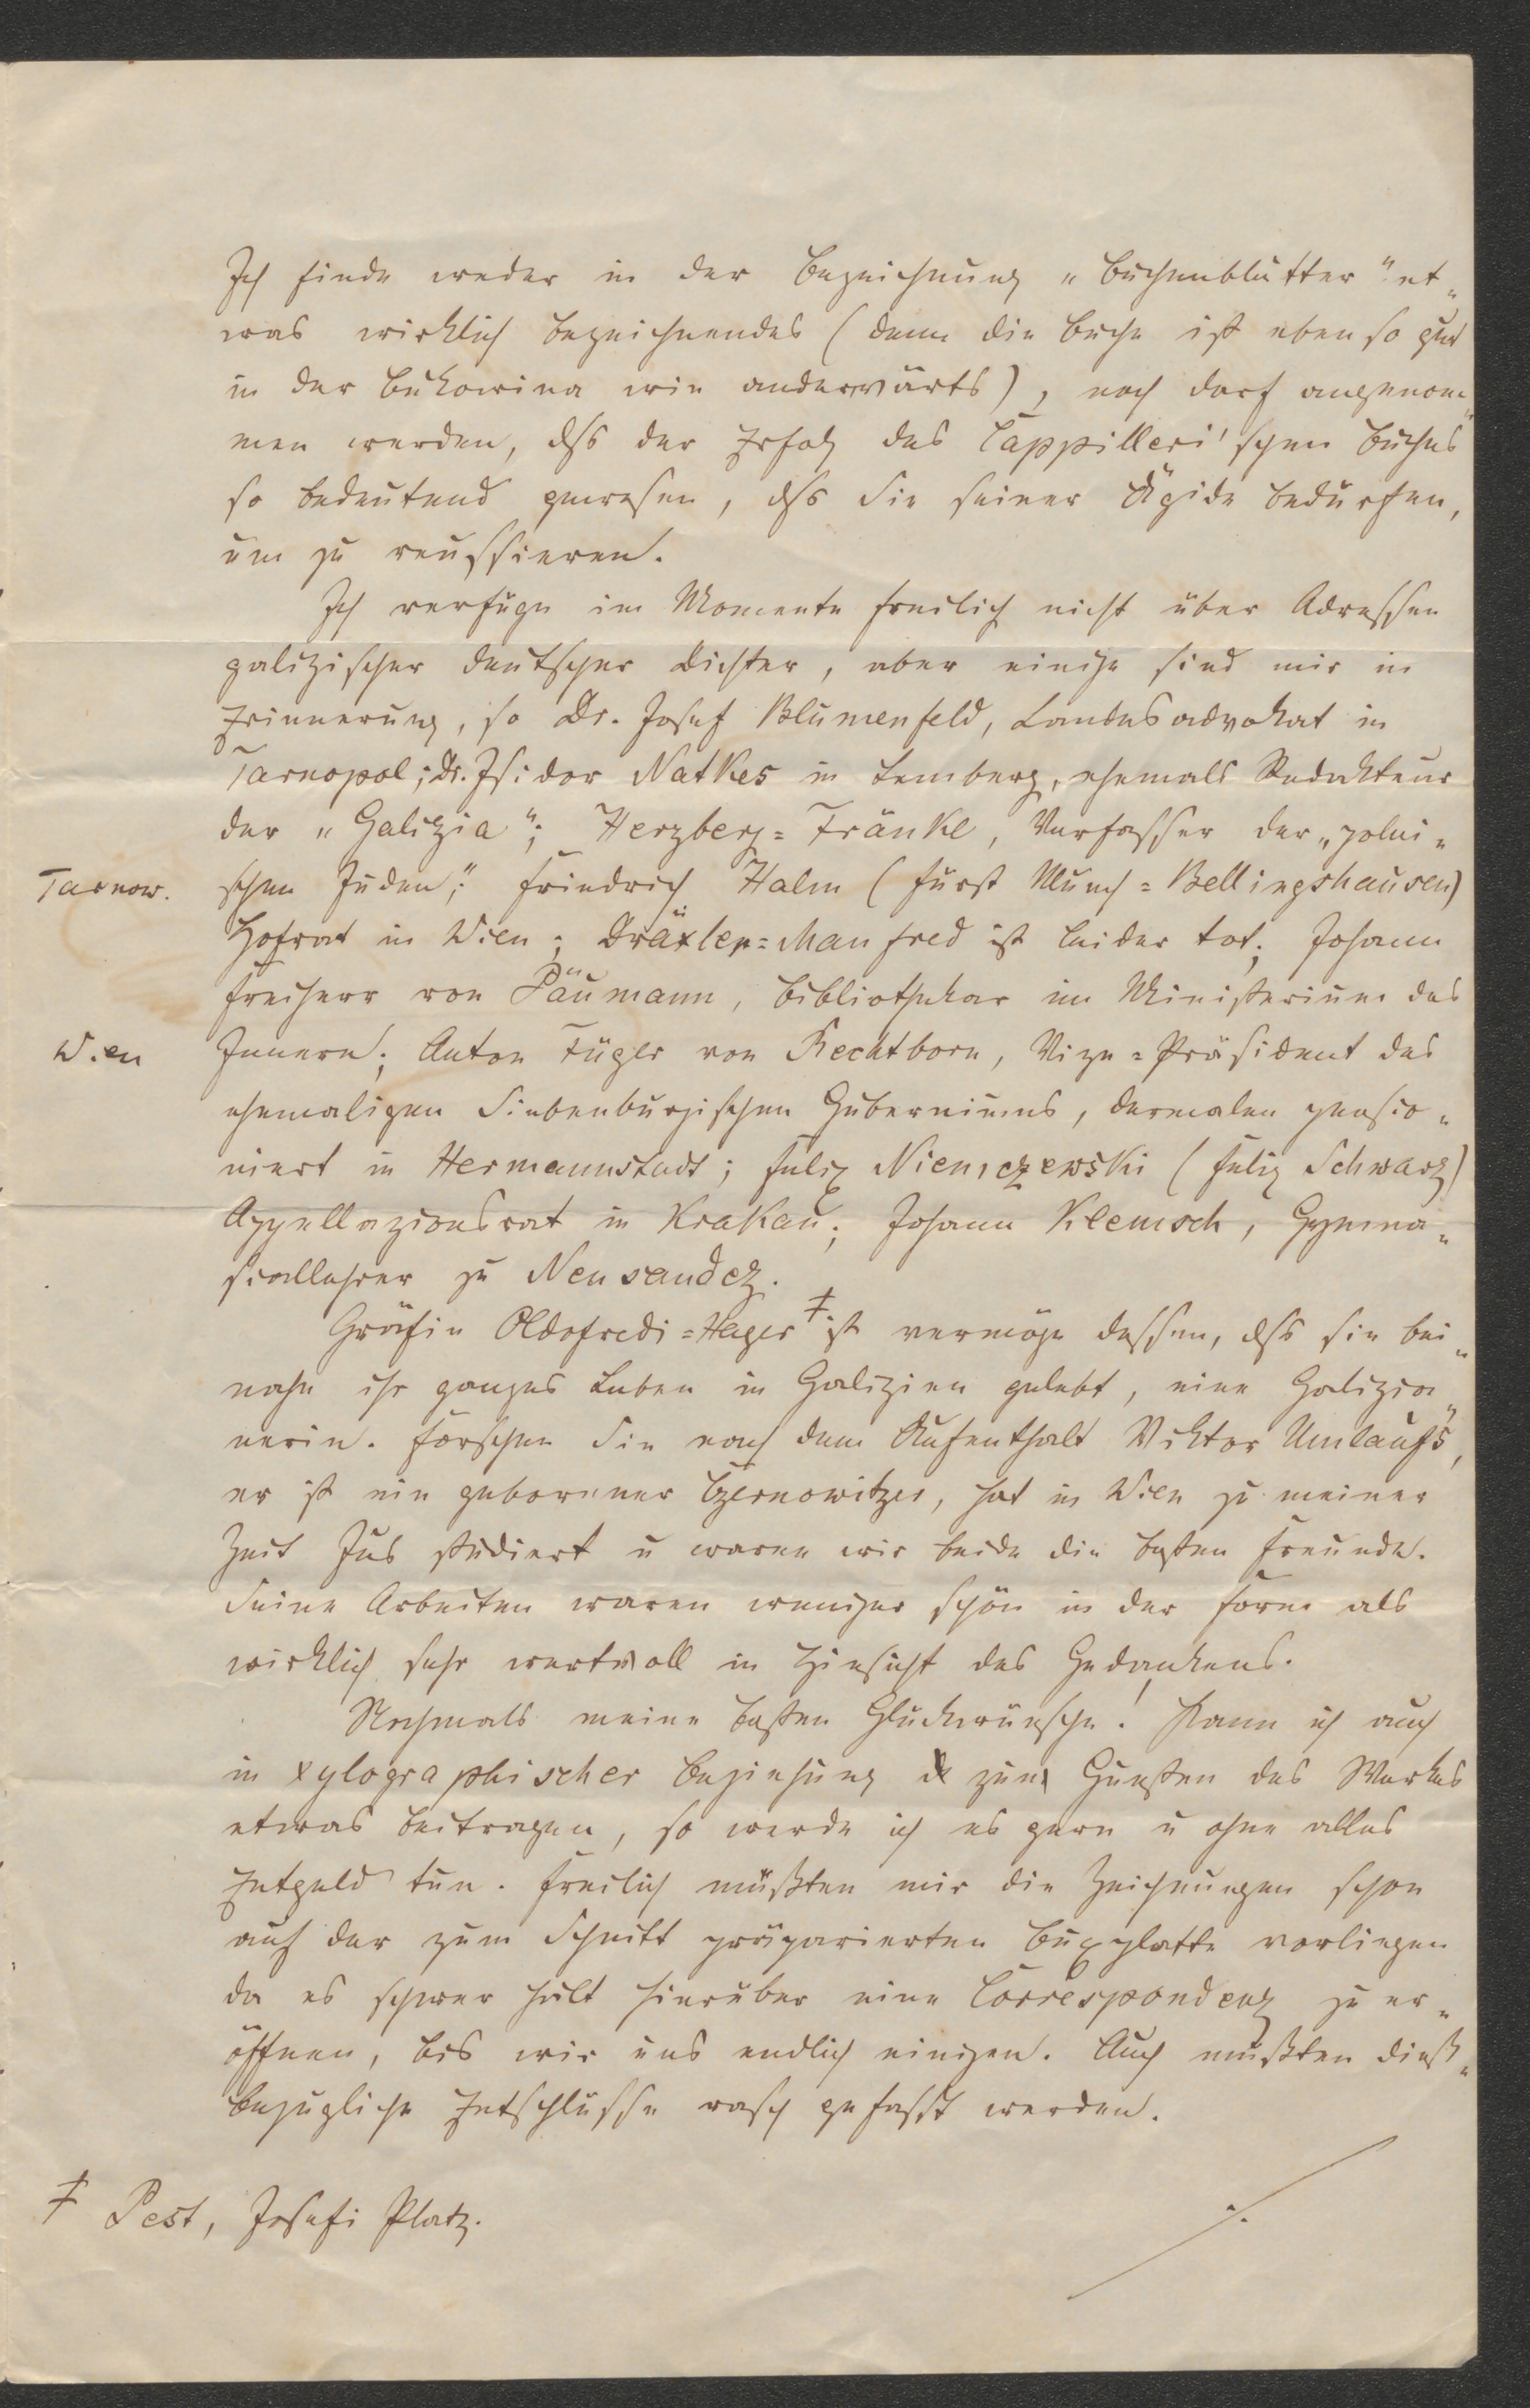 Ich finde weder in der Bezeichnung „Buchenblätter" et„
was wirklich bezeichnendes (denn die Buche ist eben so gut
in der Bukowina wie anderwärts), noch darf angenom„
men werden, dſs der Erfolg des Cappilleri'schen Buches
so bedeutend gewesen, dſs Sie seiner Ägide bedürfen,
um zu reussieren.
Ich verfüge im Momente freilich nicht über Adressen
galizischer deutscher Dichter, aber einige sind mir in
Erinnerung, so Dr. Josef Blumenfeld, Landesadvokat in
Tarnopol; Dr. Isidor Natkes in Lemberg, ehemals Redakteur
der „Galizia"; Herzberg=Fränkl, Verfasser der „polni„
Tarnow. schen Juden"; Friedrich Halm (Fürst Münch=Bellingshausen)
Hofrat in Wien; Dräxler=Manfred ist leider tot; Johann
Freiherr von Päumann, Bibliothekar im Ministerium des
Wien Innern; Anton Füger von Rechtborn, Vize=Präsident des
ehemaligen Siebenbürgischen Guberniums, dermalen pensio„
niert in Hermannstadt; Felix Niemczewski (Felix Schwarz)
Appellazionsrat in Krakau; Johann Klemsch, Gymna„
siallehrer zu Neusandez.
Gräfin Oldofredi=Hager ‡ ist vermöge dessen, dſs sie bei„
nahe ihr ganzes Leben in Galizien gelebt, eine Galizia„
nerin. Forschen Sie nach dem Aufenthalt Viktor Umlaufs,
er ist ein geborener Czernowitzer, hat in Wien zu meiner
Zeit Jus studiert u waren wir beide die besten Freunde.
Seine Arbeiten waren weniger schön in der Form als
wirklich sehr wertvoll in Hinsicht des Gedankens.
Nochmals meine besten Glückwünsche! Kann ich auch
in xylographischer Beziehung zum Gunsten des Werkes
etwas beitragen, so werde ich es gern u ohne alles
Entgeld tun. Freilich müßten mir die Zeichnungen schon
auf der zum Schnitt präparierten Buxplatte vorliegen
da es schwer hält hierüber eine Correspondenz zu er„
öffnen, bis wir uns endlich einigen. Auch müßten dieß„
bezügliche Entschlüsse rasch gefasst werden.
‡ Pest, Josefi Platz.
./.